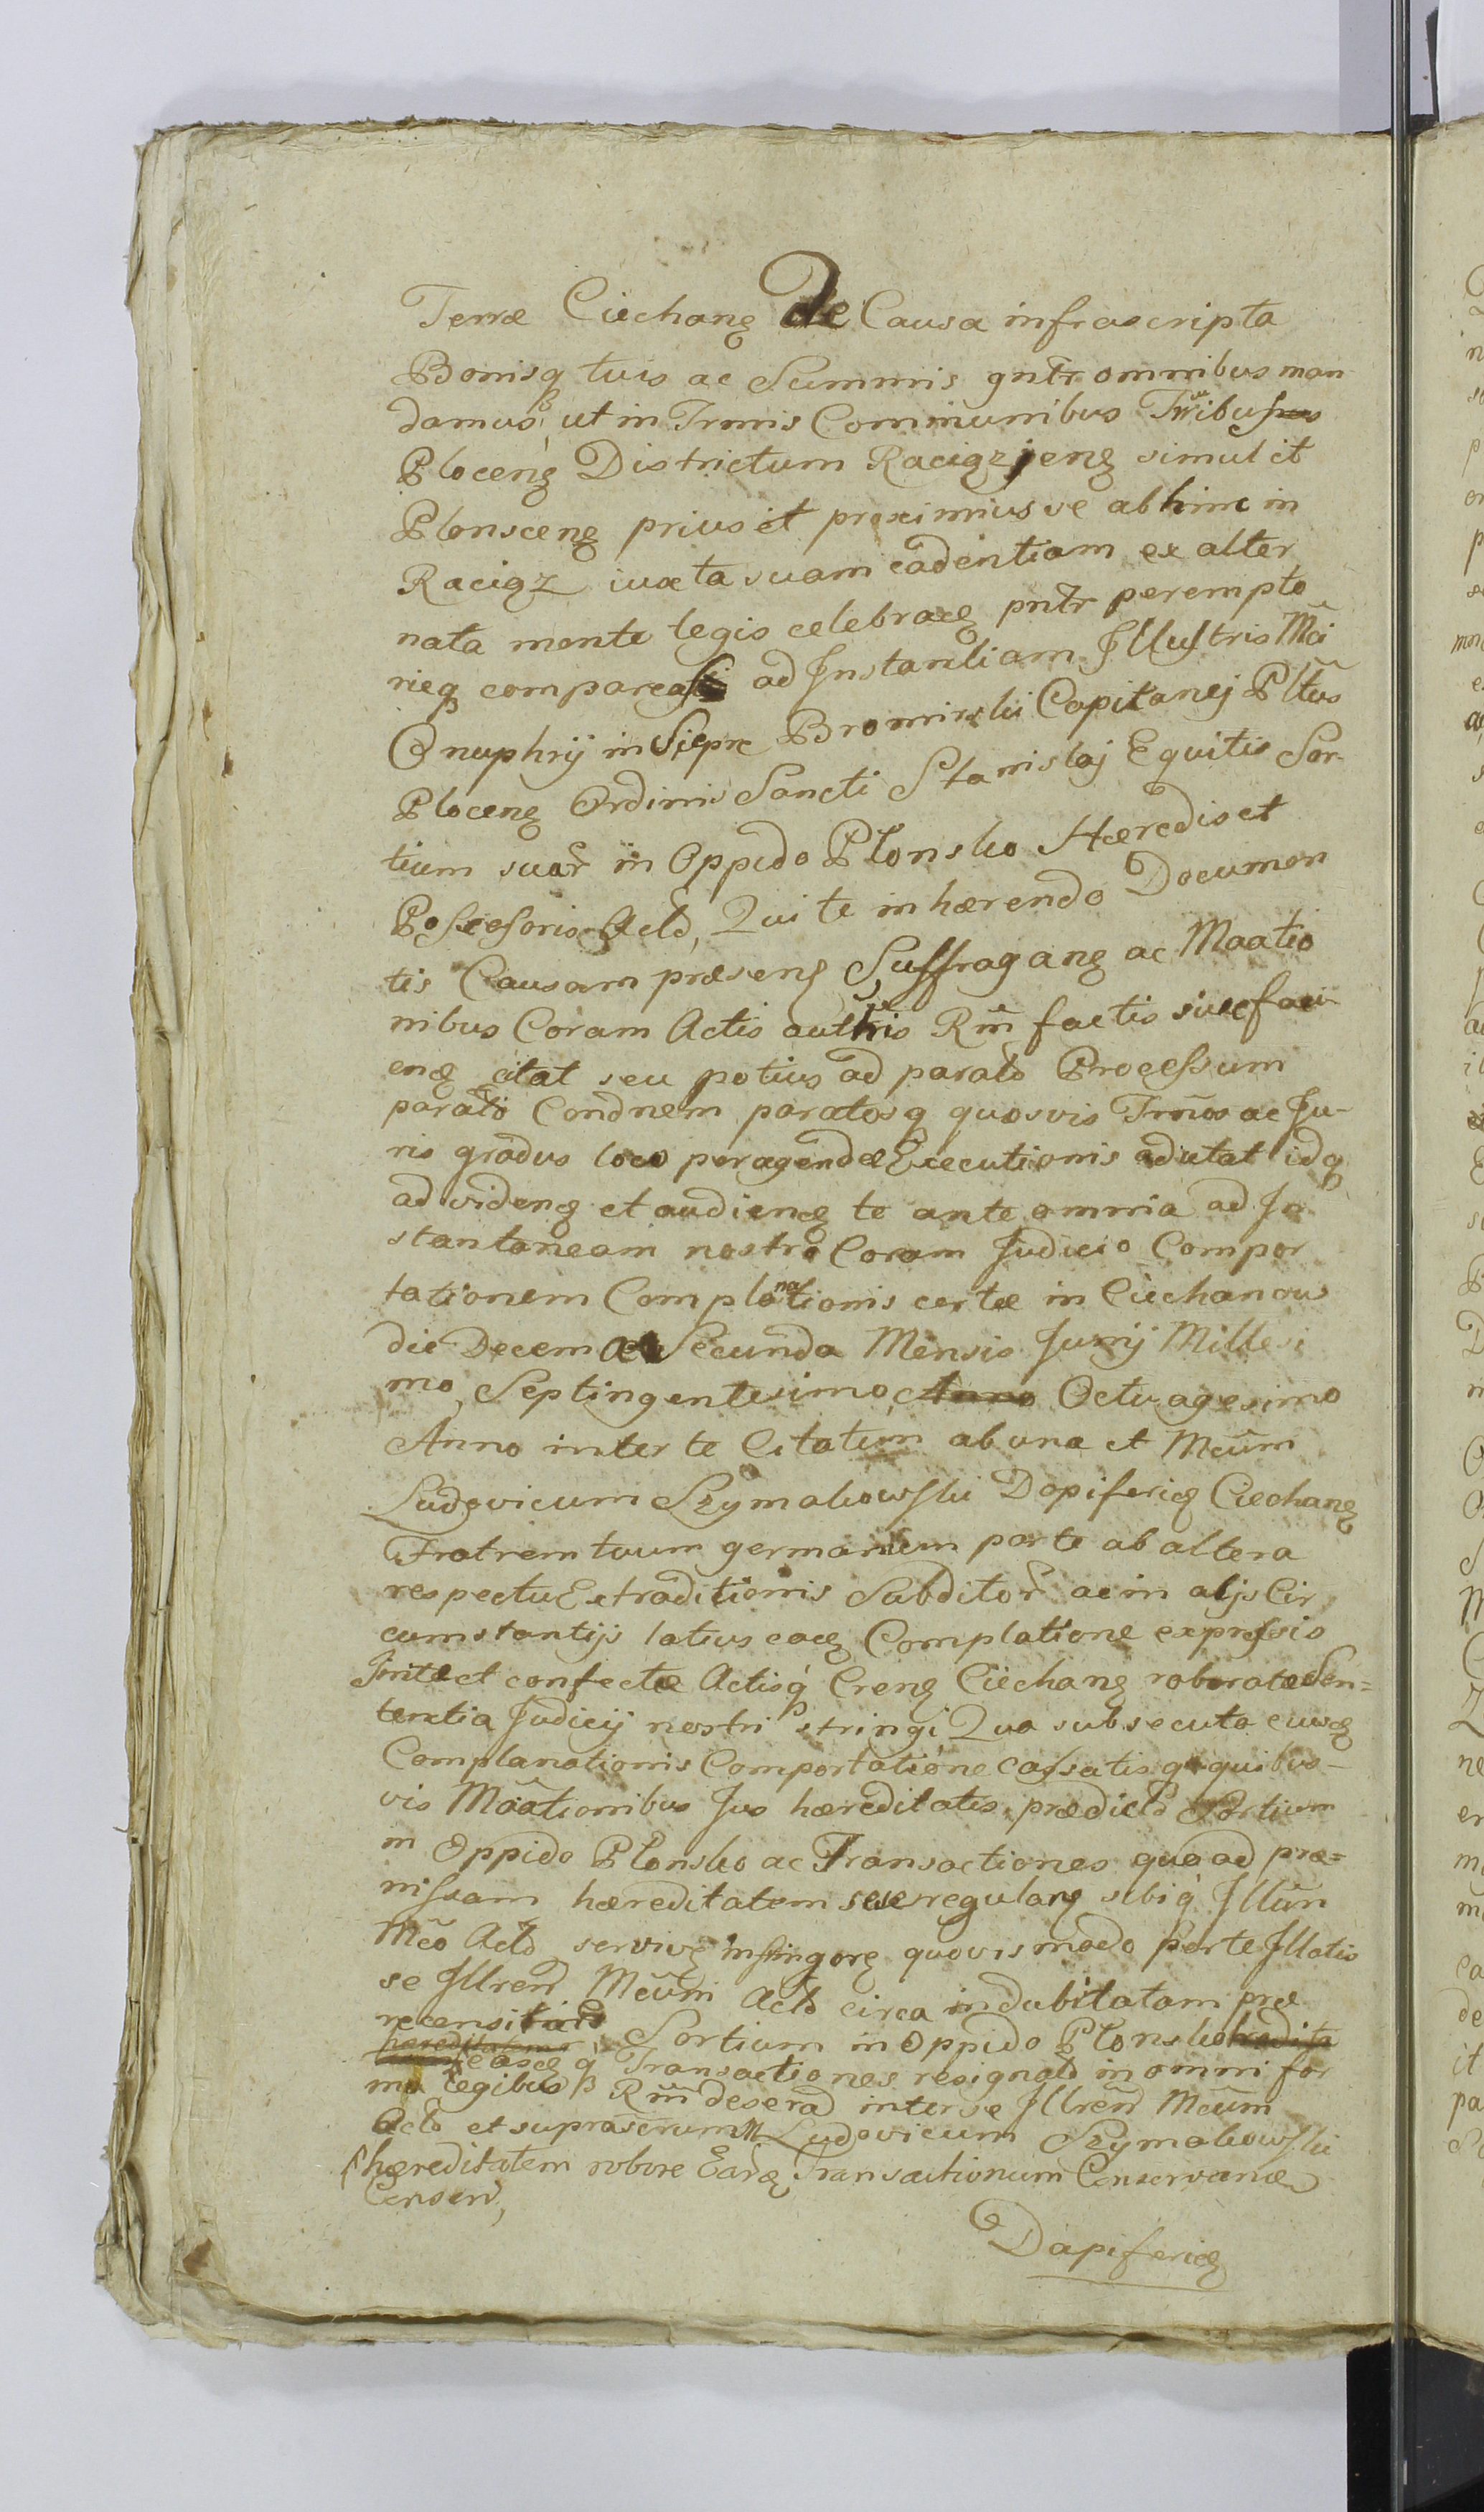 Terræ Ciechanę De Causa infrascripta
Bonisq tuis ac Summis gntr omnibus man
damus, ut in Trmis Communibus
Plocenę Districtum Raciązjenę simul et
Plonscenę prius et proximius ve abhinc in
Raciąz iuxta suam cadentiam ex alter
nata mente legis celebraną pntr perempto
rieq compareas ad Instantiam Illustris Mci
Onuphrij in Siepre Bromirski Capitanej Pltus
Plocenę Ordinis Sancti Stanislaj Equitis Sor
tium suar in Oppido Plonsko Hæredis et
Possessoris Actð, Qui te inhærendo Documen
tis Causam præsenę Suffraganę ac Maatio
nibus Coram Actis authis Rm factis
enę citat seu potius ad paratð Processum
paratð Condnem paratosq quosvis Trnos ac Ju-
ris gradus loco peragendæ Executionis adcitat idq
ad videnę et audienę te ante omnia ad In
stantaneam nostro Coram Judicio Compor
tationem Complanationis certæ in Ciechanow
die Decema Secunda Mensis Junij Millesi
mo Septingentesimo Anno Octuagesimo
Anno inter te Citatum ab una et Mcum
Ludovicum Szymakowski Dapiferię Ciechanę
Fratrem tuum germanum parte ab altera
respectu Extraditionis Subditor ac in alijs Cir
cumstantijs latius eaę Complatione expressis
Initæ et confectæ Actisq Crenę Ciechanę roboratæ Sen=
tentia Judicij nostri stringi Qua subsecuta eiusę
Complanationis Comportatione cassatisq quibus-
vis Maationibus Jus hæreditatis prædictð Sortium
in Oppido Plonsko ac Transactiones quoad præ=
missam hæreditatem sese regulanę sibiq Illun
Mco Actð servivę infringorę quovis modo per te Illatis
se Illren Mcum Actð circa indubitatam præ
recensitarð Sortium in Oppido Plonsko
hæreditatem easę q Transactiones resignatð in omni for
ma legibus Rm deserað inter se Illren Mcum
Actð et suprascrum M Ludovicum Szymakowski
hæreditatem robore Earę Transactionum Conservanð
Censeri,
Dapiferię